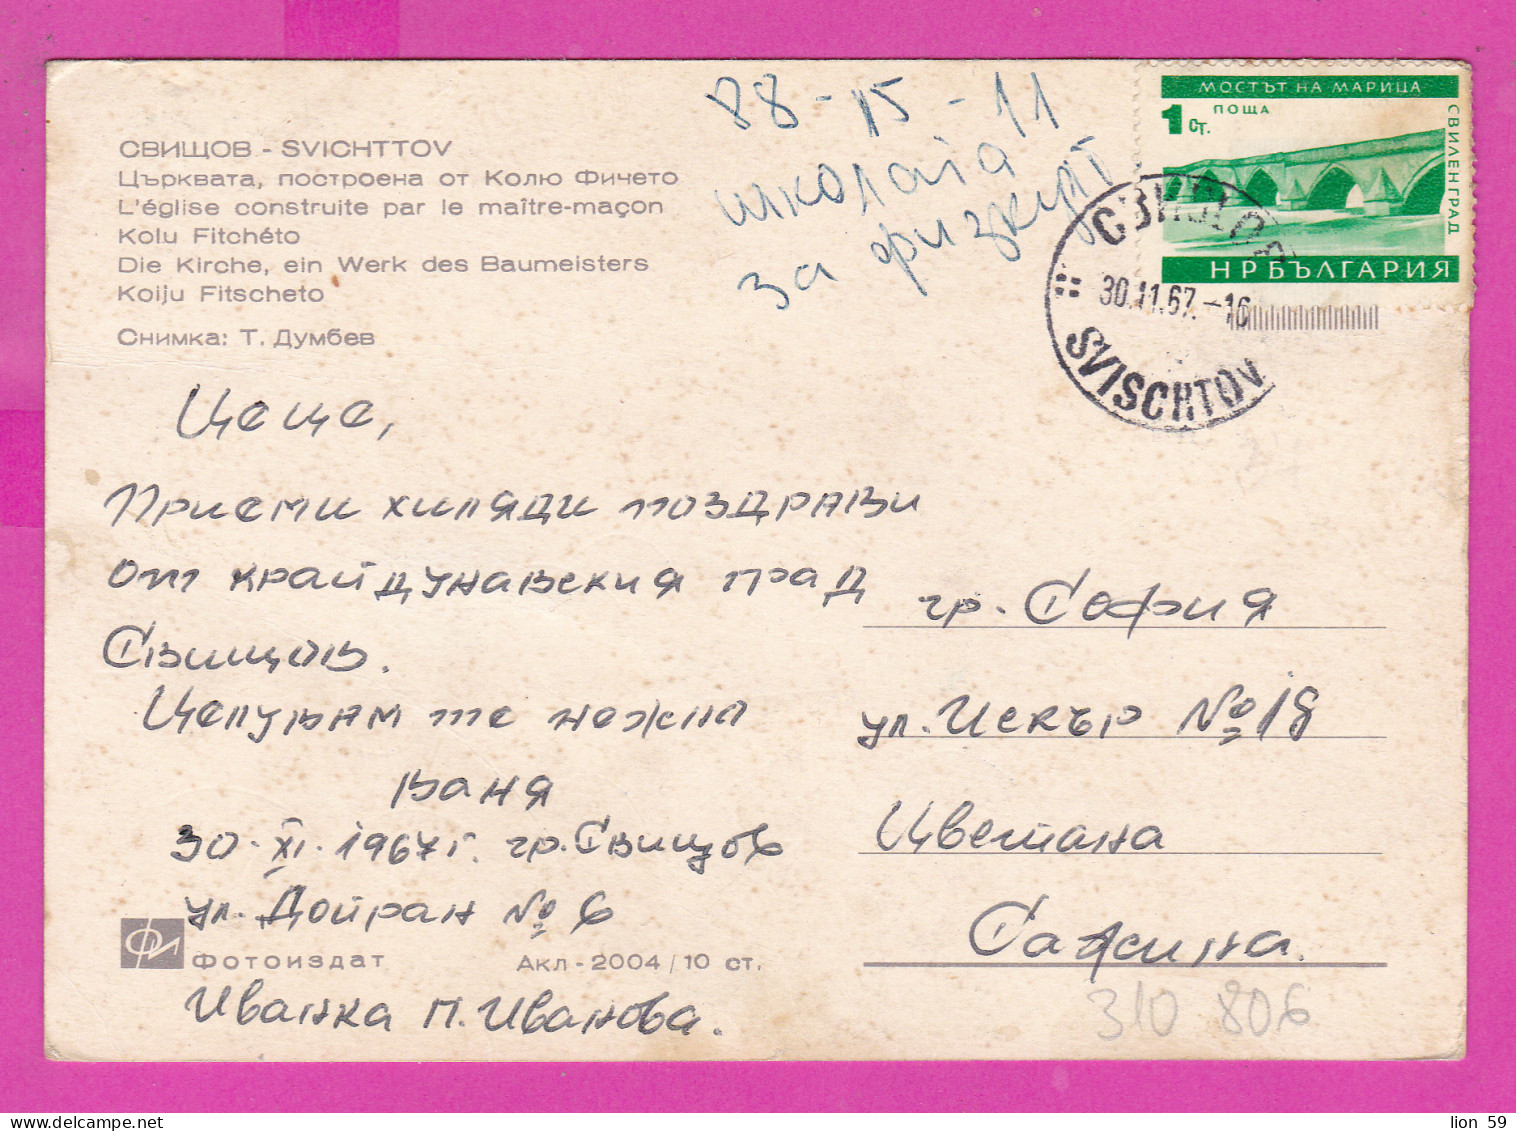 88-15-11
школата
за физкулт
МОСТЪТ НА МАРИЦА
1 СТ.
ПОЩА
СВИЛЕНГРАД
НР БЪЛГАРИЯ
СВИЩОВ
30.11.67.-16
SVISCHTOV
СВИЩОВ - SVICHTTOV
Църквата, построена от Колю Фичето
L'église construite par le maître-maçon
Kolu Fitchéto
Die Kirche, ein Werk des Baumeisters
Koiju Fitscheto
Снимка: Т. Думбев
Цеце,
Приеми хиляди поздрави
от крайдунавския град
Свищов.
Целувам те нежно
Ваня
30.XI.1967г. гр. Свищов
ул. Дойран № 6
Фотоиздат Акл-2004/10 ст.
Иванка П. Иванова.
гр. София
ул. Искър № 18
Цветана
310 806
lion 59